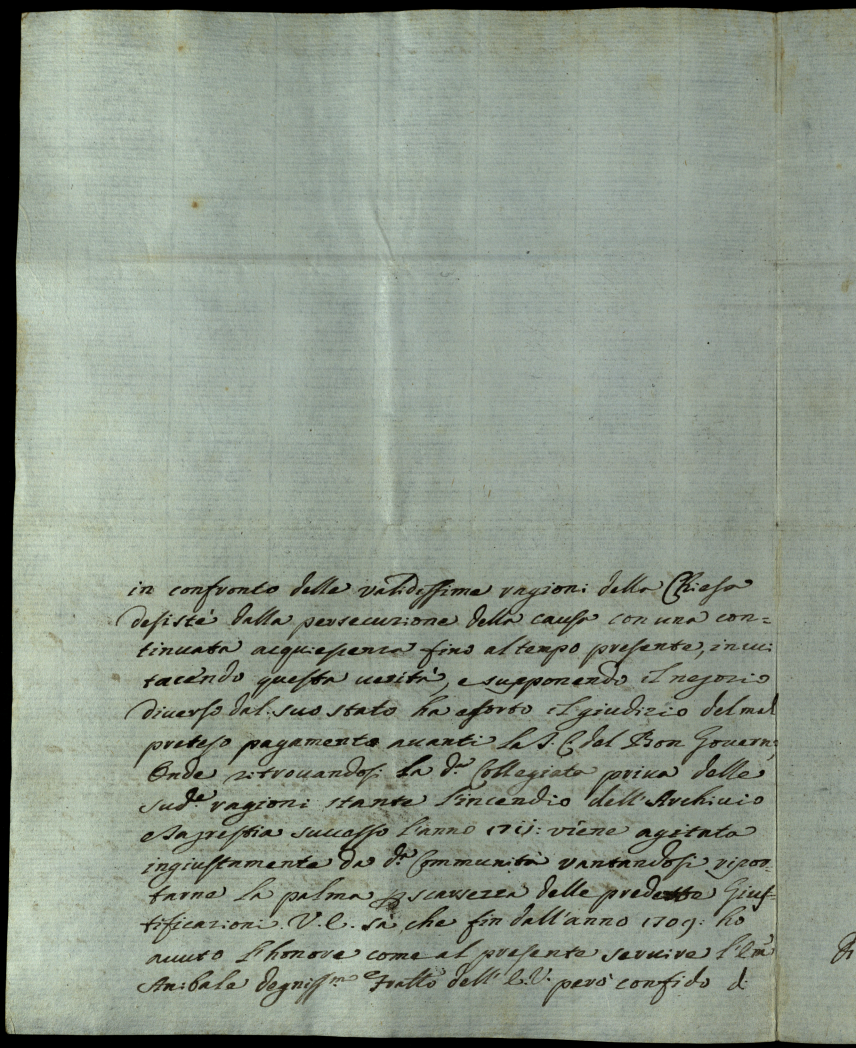 in confronto delle validissime ragioni della Chiesa
desistè dalla persecuzione della causa con una con=
tinuata acquiescenza fino al tempo presente, in cui
tacendo questa verità, e supponendo il negozio
diverso dal suo stato ha esorto il giudizio del mal
preteso pagamento avanti la S. C. del Bon Govern:
Onde ritrovandosi la d.ª Collegiata priva delle
sud.e ragioni stante l'incendio dell'Archivio
e Sagrestia successo l'anno 1711: viene agitata
ingiustamente da d.ª Communità vantandosi ripor=
tarne la palma p scarsezza delle predette Gius=
tificazioni. V. E. sà, che fin dall'anno 1709: ho
avuto l'honore come al presente servire l'Em.
Anibale degniss.mo Frallo dell'E. V. però confido d: